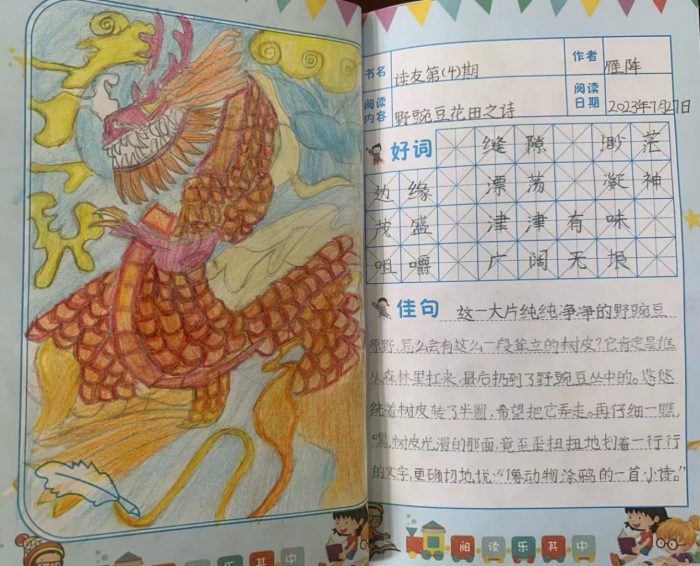 书名 读友第(4)期 作者 雁阵
阅读内容 野豌豆花田之诗 阅读日期 2023年7月27日
好词 缝隙 渺茫
边缘 漂荡 凝神
茂盛 津津有味
咀嚼 广阔无垠
佳句 这一大片纯纯净净的野豌豆
原野,怎么会有这么一段耸立的树皮?它肯定是他
从森林里扛来,最后扔到了野豌豆丛中的。悠悠
绕着树皮转了半圈,希望把它弄走。再仔细一瞧,
嘿,树皮光滑的那面,竟歪歪扭扭地刻着一行行
的文字,更确切地说:“像动物涂鸦的一首小诗。”
阅读乐其中